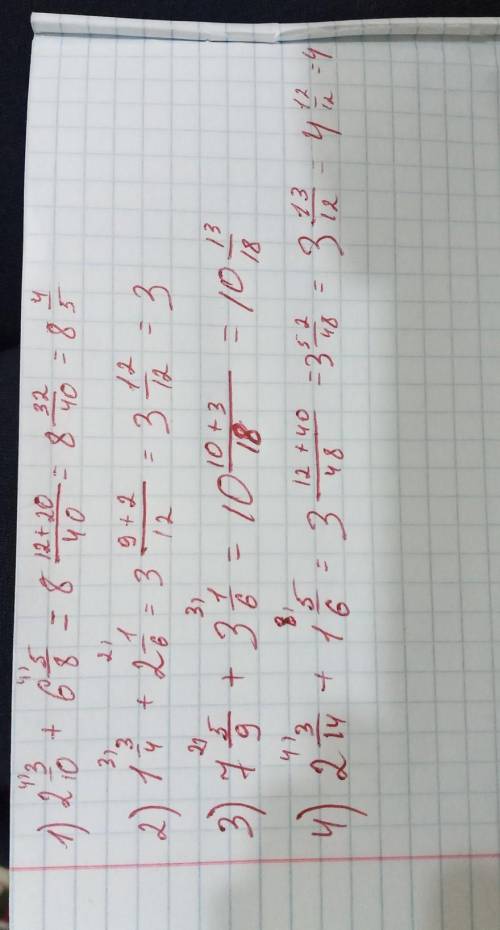 1) 2 4) 3/10 + 6 4) 5/8 = 8 12+20/40 = 8 32/40 = 8 4/5
2) 1 3) 3/4 + 2 2) 1/6 = 3 9+2/12 = 3 12/12 = 3
3) 7 2) 5/9 + 3 3) 1/6 = 10 10+3/18 = 10 13/18
4) 2 4) 3/14 + 1 8) 5/6 = 3 12+40/48 = 3 52/48 = 3 13/12 = 4 12/12 = 4